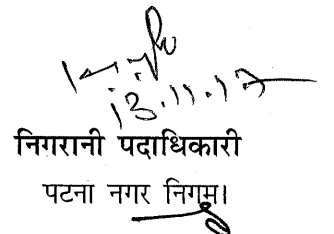 13.11.17
निगरानी पदाधिकारी
पटना नगर निगम।